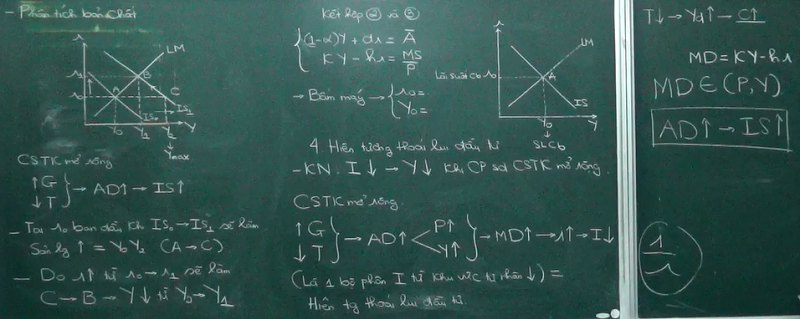 - Phân tích bản chất
r
LM
r1
B
r0
A
C
IS1
IS0
Y0 Y1 Y2 Y
Ymax
CSTK mở rộng
↑G
↓T } → AD↑ → IS↑
- Tại r0 ban đầu khi IS0 → IS1 sẽ làm
Sản lg ↑ = Y0Y2 (A → C)
- Do r↑ từ r0 → r1 sẽ làm
C → B → Y↓ từ Y2 → Y1
Kết hợp ② và ③
{ (1-α)Y + dr = A̅
KY - hr = M̅S̅/P
→ Bấm máy → { r0 =
Y0 =
r
LM
Lãi suất cb r0
A
IS
Y0 Y
SLCb
4. Hiện tượng thoái lui đầu tư
- KN: I↓ → Y↓ khi CP sd CSTK mở rộng.
CSTK mở rộng:
↑G
↓T } → AD↑ < P↑
Y↑ } → MD↑ → r↑ → I↓
(Là 1 bộ phận I từ khu vực tư nhân ↓) =
Hiện tg thoái lui đầu tư.
T↓ → Yd↑ → C↑
MD = KY - hr
MD ∈ (P,Y)
AD↑ → IS↑
1/r